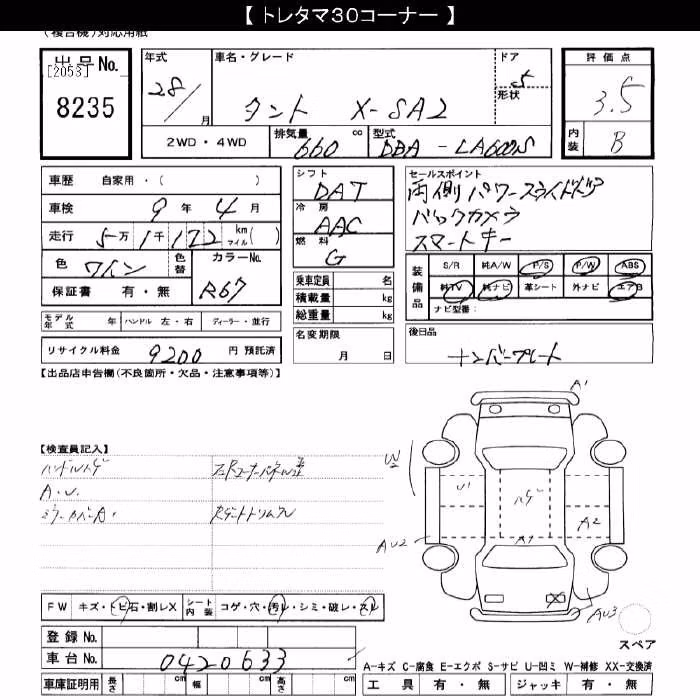 【 トレタマ30コーナー 】
(複合機)対応用紙
出品No.
[2053]
8235
年式 車名・グレード ドア
28/ 月 タント X-SA2 5
形状
2WD・4WD 排気量 660 cc 型式 DBA-LA600S
評価点
3.5
内装 B
車歴 自家用・( )
車検 9年 4月
走行 5万 1千 172 km マイル( )
色 ワイン 色替 カラーNo. R67
保証書 有・無
モデル年式 年 ハンドル 左・右 ディーラー・並行
リサイクル料金 9200 円 預託済
シフト DAT
冷房 AAC
燃料 G
乗車定員 名
積載量 kg
総重量 kg
名変期限
月 日
セールスポイント
両側パワースライドドア
バックカメラ
スマートキー
装備品 S/R 純A/W P/S P/W ABS
純TV 純ナビ 革シート 外ナビ エアB
ナビ型番:
後日品
ナンバープレート
【出品店申告欄(不良箇所・欠品・注意事項等)】
【検査員記入】
ハンドルハゲ
A・U・
ミラーカバーA・
A1
W2
U1
ハゲ
A2
A1
AU2
AU3
FW キズ・トビ石・割レX シート内装 コゲ・穴・汚レ・シミ・破レ・スレ
登録No.
車台No. 0420633
スペア
A-キズ C-腐食 E-エクボ S-サビ U-凹ミ W-補修 XX-交換済
車庫証明用 長さ cm 幅 cm 高さ cm
工具 有・無 ジャッキ 有・無